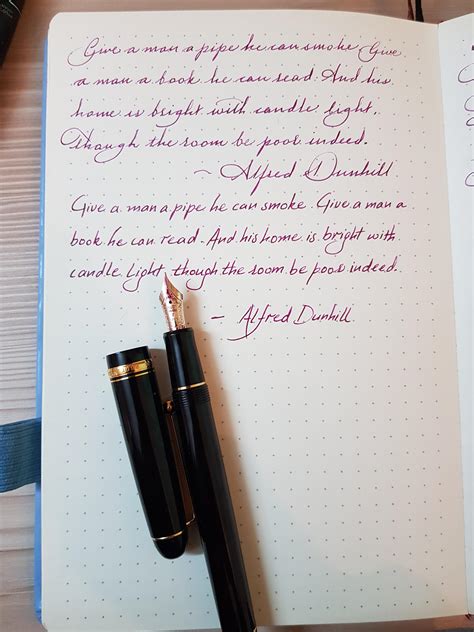 Give a man a pipe he can smoke Give
a man a book he can read. And his
home is bright with candle light,
Though the room be poor indeed.
~ Alfred Dunhill
Give a man a pipe he can smoke. Give a man a
book he can read. And his home is bright with
candle light, though the room be poor indeed.
— Alfred Dunhill